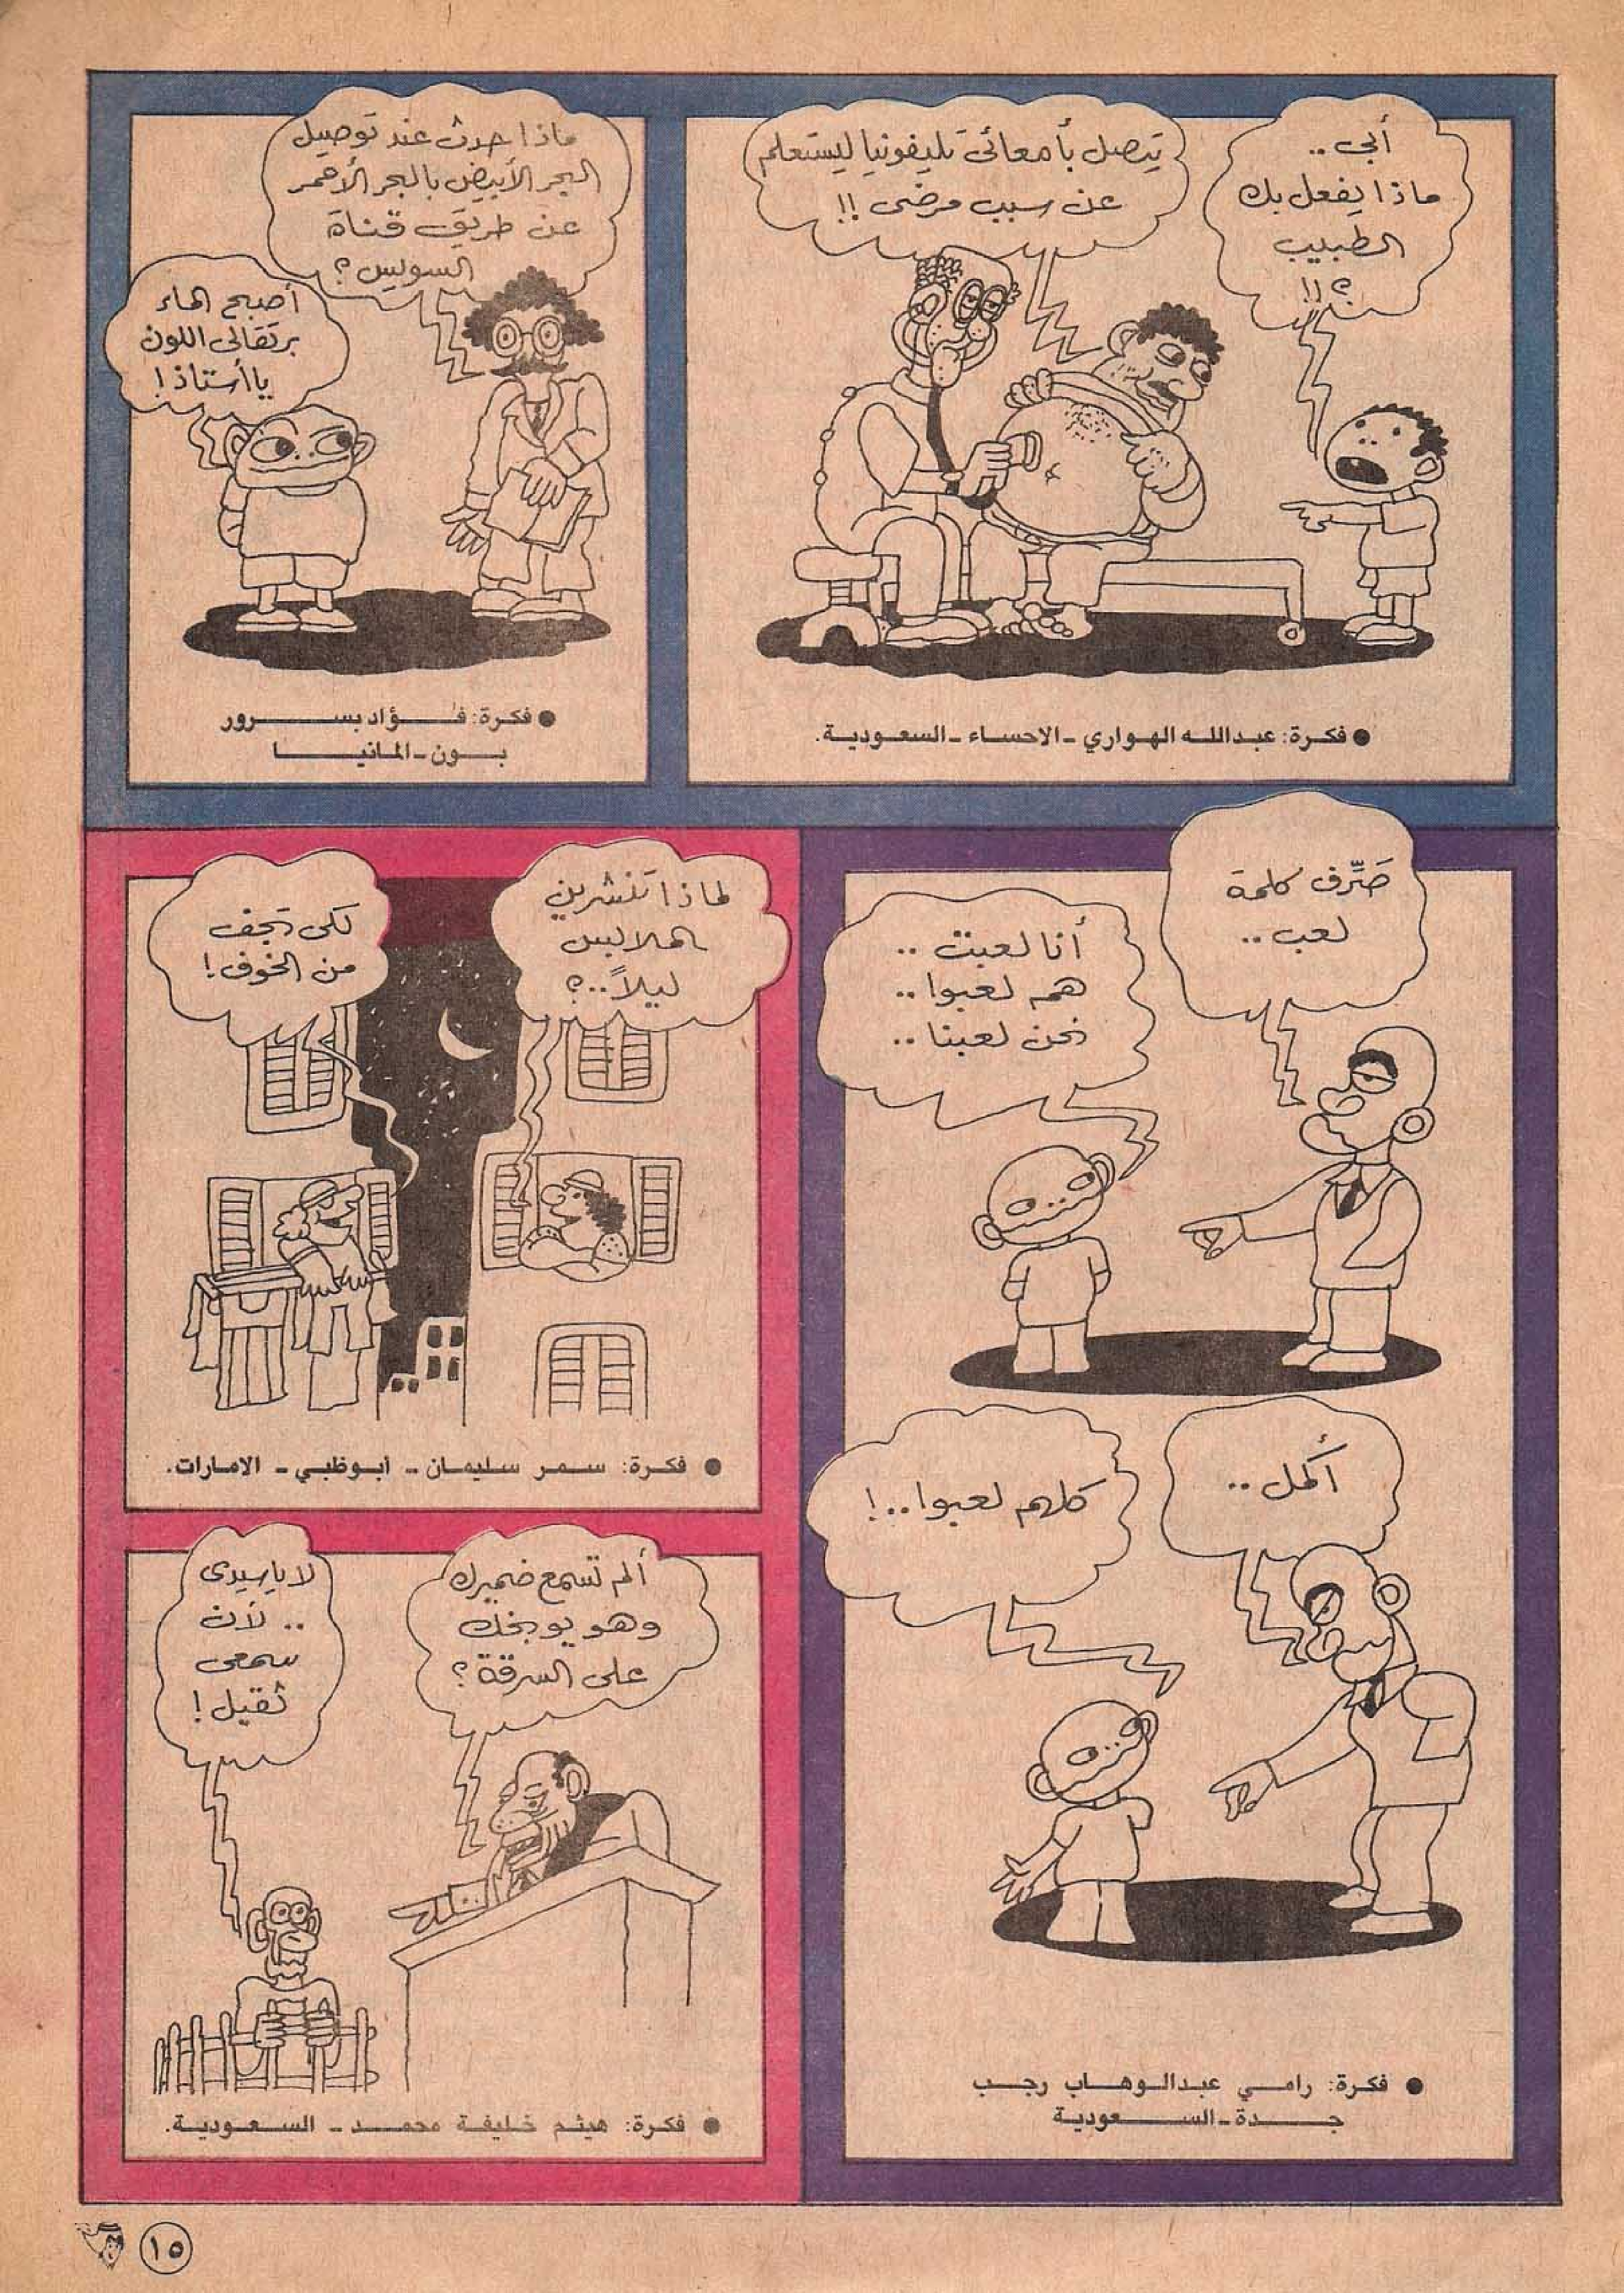 أبى ..
ماذا يفعل بك
الطبيب
؟!!
يتصل بأمعائى تليفونيا ليستعلم
عن سبب مرضى !!
● فكرة: عبدالله الهواري ـ الاحساء ـ السعودية.
ماذا حدث عند توصيل
البحر الأبيض بالبحر الأحمر
عن طريق قناة
السويس ؟
أصبح الماء
برتقالى اللون
يا أستاذ !
● فكرة: فؤاد بسرور
بون ـ المانيا
صَرِّف كلمة
لعب ..
أنا لعبت ..
هم لعبوا ..
نحن لعبنا ..
أكمل ..
كلهم لعبوا ..!
● فكرة: رامي عبدالوهاب رجب
جدة ـ السعودية
لماذا تنشرين
الملابس
ليلاً ..؟
لكى تجف
من الخوف !
● فكرة: سمر سليمان ـ أبوظبي ـ الامارات.
ألم تسمع ضميرك
وهو يوبخك
على السرقة ؟
لا ياسيدى
.. لأن
سمعى
ثقيل !
● فكرة: هيثم خليفة محمد ـ السعودية.
١٥